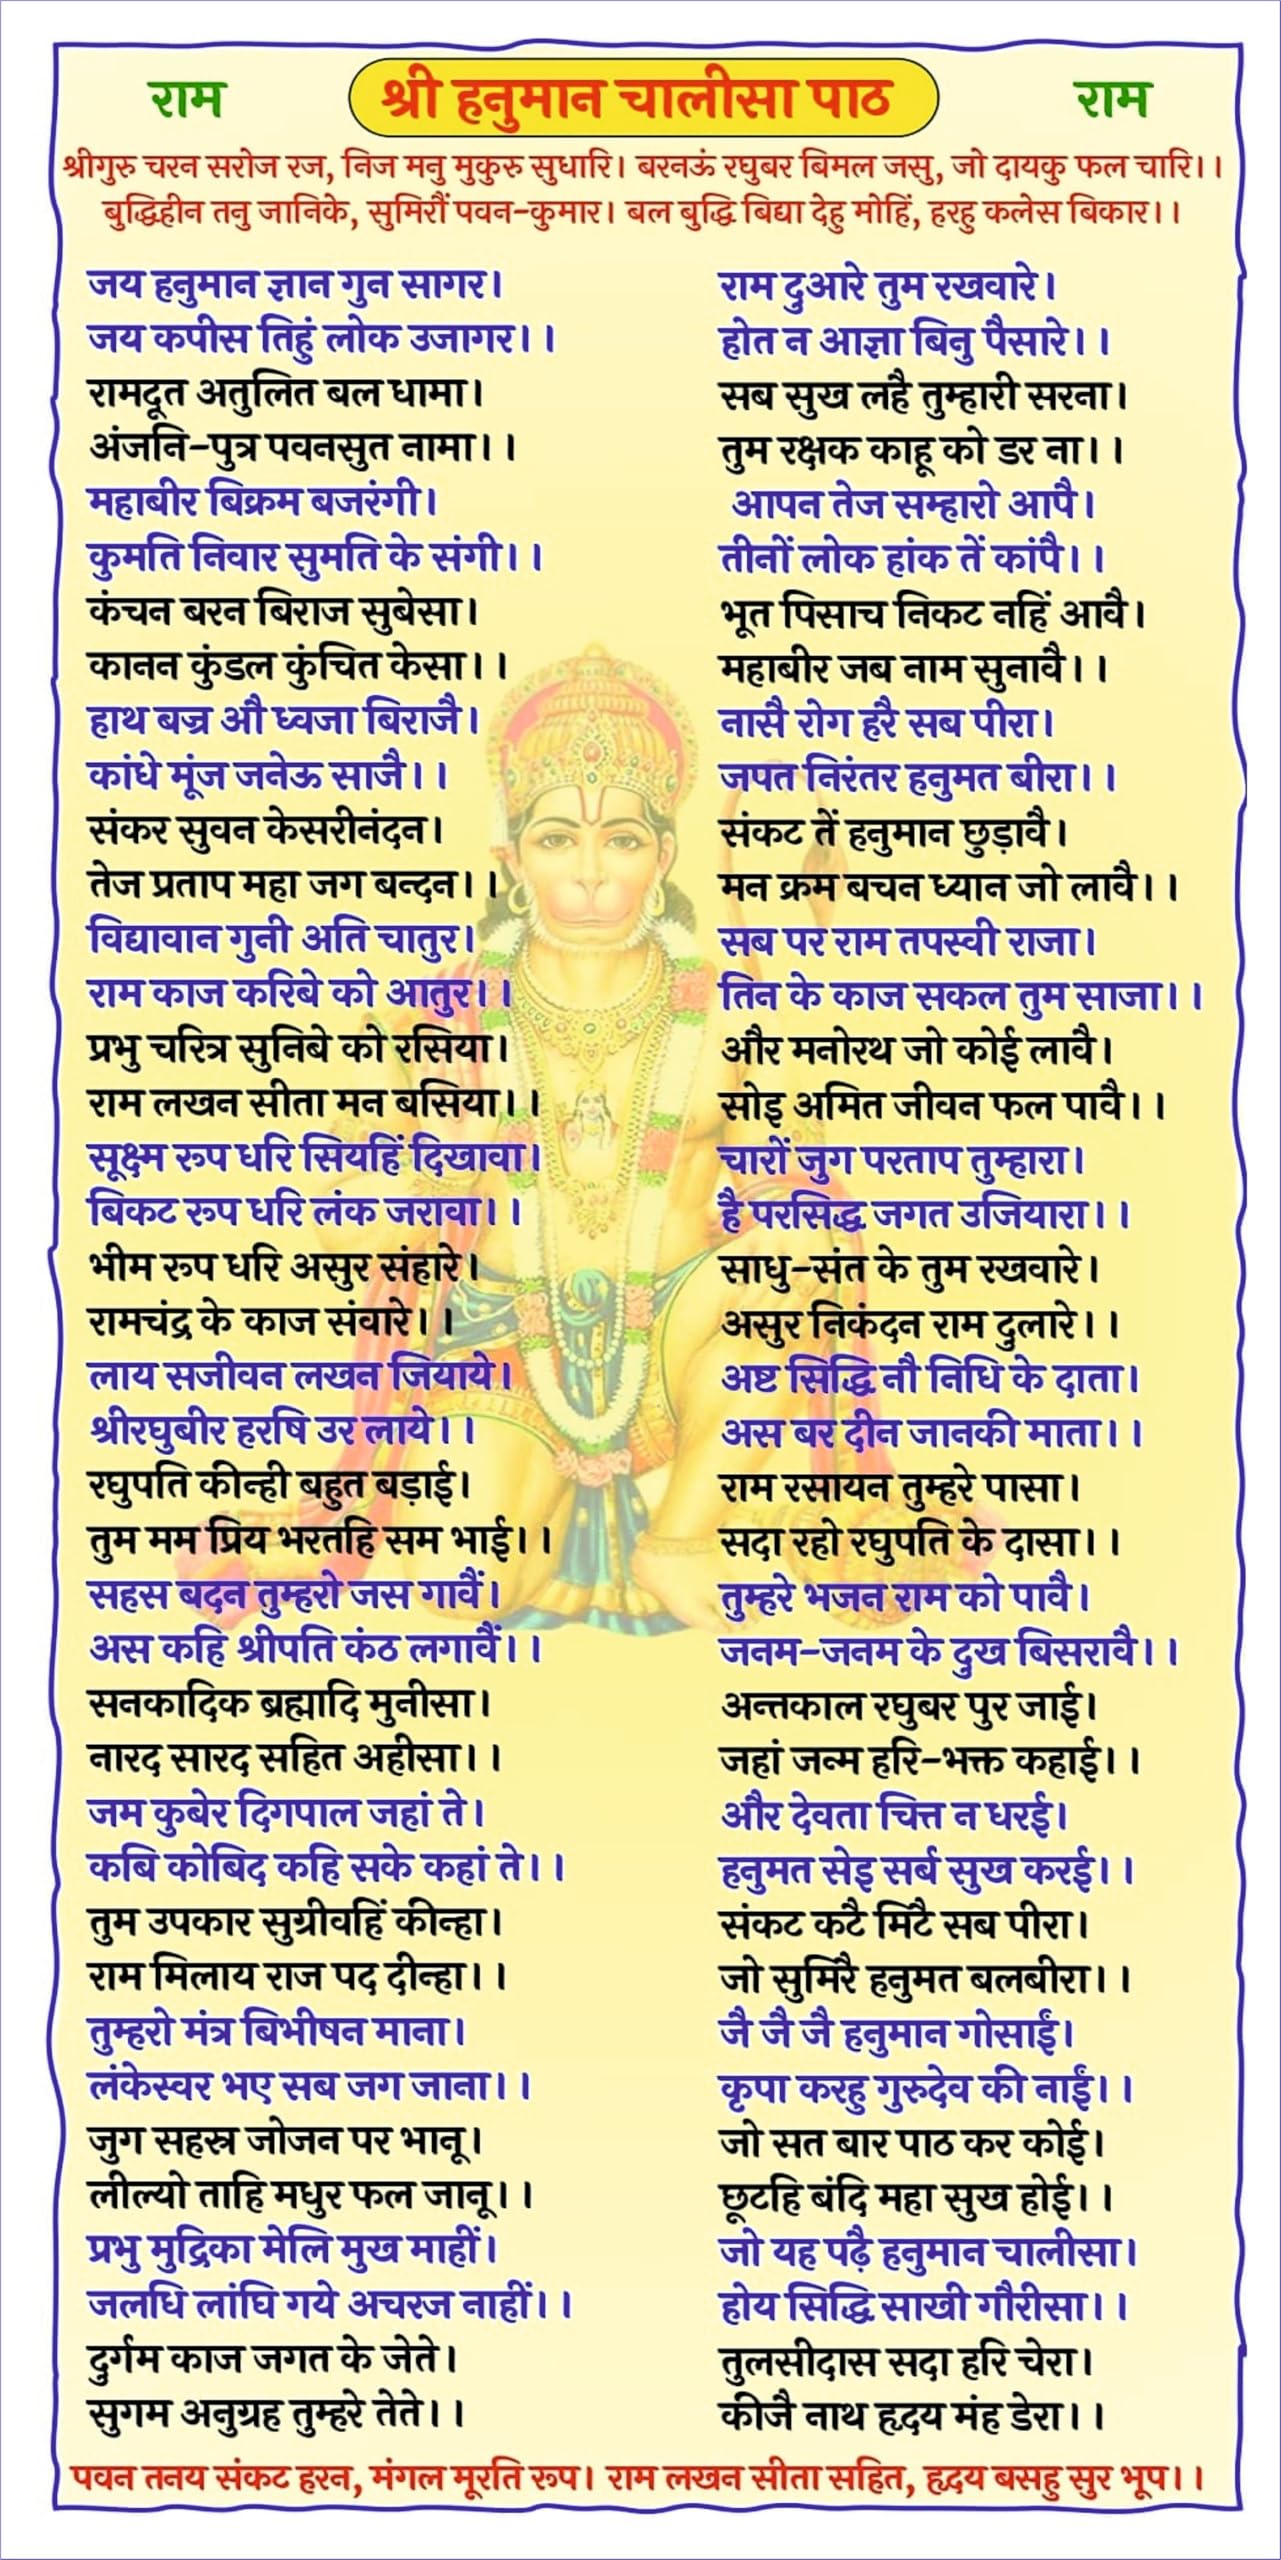 राम श्री हनुमान चालीसा पाठ राम
श्रीगुरु चरन सरोज रज, निज मनु मुकुरु सुधारि। बरनऊं रघुबर बिमल जसु, जो दायकु फल चारि।।
बुद्धिहीन तनु जानिके, सुमिरौं पवन-कुमार। बल बुद्धि बिद्या देहु मोहिं, हरहु कलेस बिकार।।
जय हनुमान ज्ञान गुन सागर।
जय कपीस तिहुं लोक उजागर।।
रामदूत अतुलित बल धामा।
अंजनि-पुत्र पवनसुत नामा।।
महाबीर बिक्रम बजरंगी।
कुमति निवार सुमति के संगी।।
कंचन बरन बिराज सुबेसा।
कानन कुंडल कुंचित केसा।।
हाथ बज्र औ ध्वजा बिराजै।
कांधे मूंज जनेऊ साजै।।
संकर सुवन केसरीनंदन।
तेज प्रताप महा जग बन्दन।।
विद्यावान गुनी अति चातुर।
राम काज करिबे को आतुर।।
प्रभु चरित्र सुनिबे को रसिया।
राम लखन सीता मन बसिया।।
सूक्ष्म रूप धरि सियहिं दिखावा।
बिकट रूप धरि लंक जरावा।।
भीम रूप धरि असुर संहारे।
रामचंद्र के काज संवारे।।
लाय सजीवन लखन जियाये।
श्रीरघुबीर हरषि उर लाये।।
रघुपति कीन्ही बहुत बड़ाई।
तुम मम प्रिय भरतहि सम भाई।।
सहस बदन तुम्हरो जस गावैं।
अस कहि श्रीपति कंठ लगावैं।।
सनकादिक ब्रह्मादि मुनीसा।
नारद सारद सहित अहीसा।।
जम कुबेर दिगपाल जहां ते।
कबि कोबिद कहि सके कहां ते।।
तुम उपकार सुग्रीवहिं कीन्हा।
राम मिलाय राज पद दीन्हा।।
तुम्हरो मंत्र बिभीषन माना।
लंकेस्वर भए सब जग जाना।।
जुग सहस्र जोजन पर भानू।
लील्यो ताहि मधुर फल जानू।।
प्रभु मुद्रिका मेलि मुख माहीं।
जलधि लांघि गये अचरज नाहीं।।
दुर्गम काज जगत के जेते।
सुगम अनुग्रह तुम्हरे तेते।।
राम दुआरे तुम रखवारे।
होत न आज्ञा बिनु पैसारे।।
सब सुख लहै तुम्हारी सरना।
तुम रक्षक काहू को डर ना।।
आपन तेज सम्हारो आपै।
तीनों लोक हांक तें कांपै।।
भूत पिसाच निकट नहिं आवै।
महाबीर जब नाम सुनावै।।
नासै रोग हरै सब पीरा।
जपत निरंतर हनुमत बीरा।।
संकट तें हनुमान छुड़ावै।
मन क्रम बचन ध्यान जो लावै।।
सब पर राम तपस्वी राजा।
तिन के काज सकल तुम साजा।।
और मनोरथ जो कोई लावै।
सोइ अमित जीवन फल पावै।।
चारों जुग परताप तुम्हारा।
है परसिद्ध जगत उजियारा।।
साधु-संत के तुम रखवारे।
असुर निकंदन राम दुलारे।।
अष्ट सिद्धि नौ निधि के दाता।
अस बर दीन जानकी माता।।
राम रसायन तुम्हरे पासा।
सदा रहो रघुपति के दासा।।
तुम्हरे भजन राम को पावै।
जनम-जनम के दुख बिसरावै।।
अन्तकाल रघुबर पुर जाई।
जहां जन्म हरि-भक्त कहाई।।
और देवता चित्त न धरई।
हनुमत सेइ सर्ब सुख करई।।
संकट कटै मिटै सब पीरा।
जो सुमिरै हनुमत बलबीरा।।
जै जै जै हनुमान गोसाईं।
कृपा करहु गुरुदेव की नाईं।।
जो सत बार पाठ कर कोई।
छूटहि बंदि महा सुख होई।।
जो यह पढ़ै हनुमान चालीसा।
होय सिद्धि साखी गौरीसा।।
तुलसीदास सदा हरि चेरा।
कीजै नाथ हृदय मंह डेरा।।
पवन तनय संकट हरन, मंगल मूरति रूप। राम लखन सीता सहित, हृदय बसहु सुर भूप।।